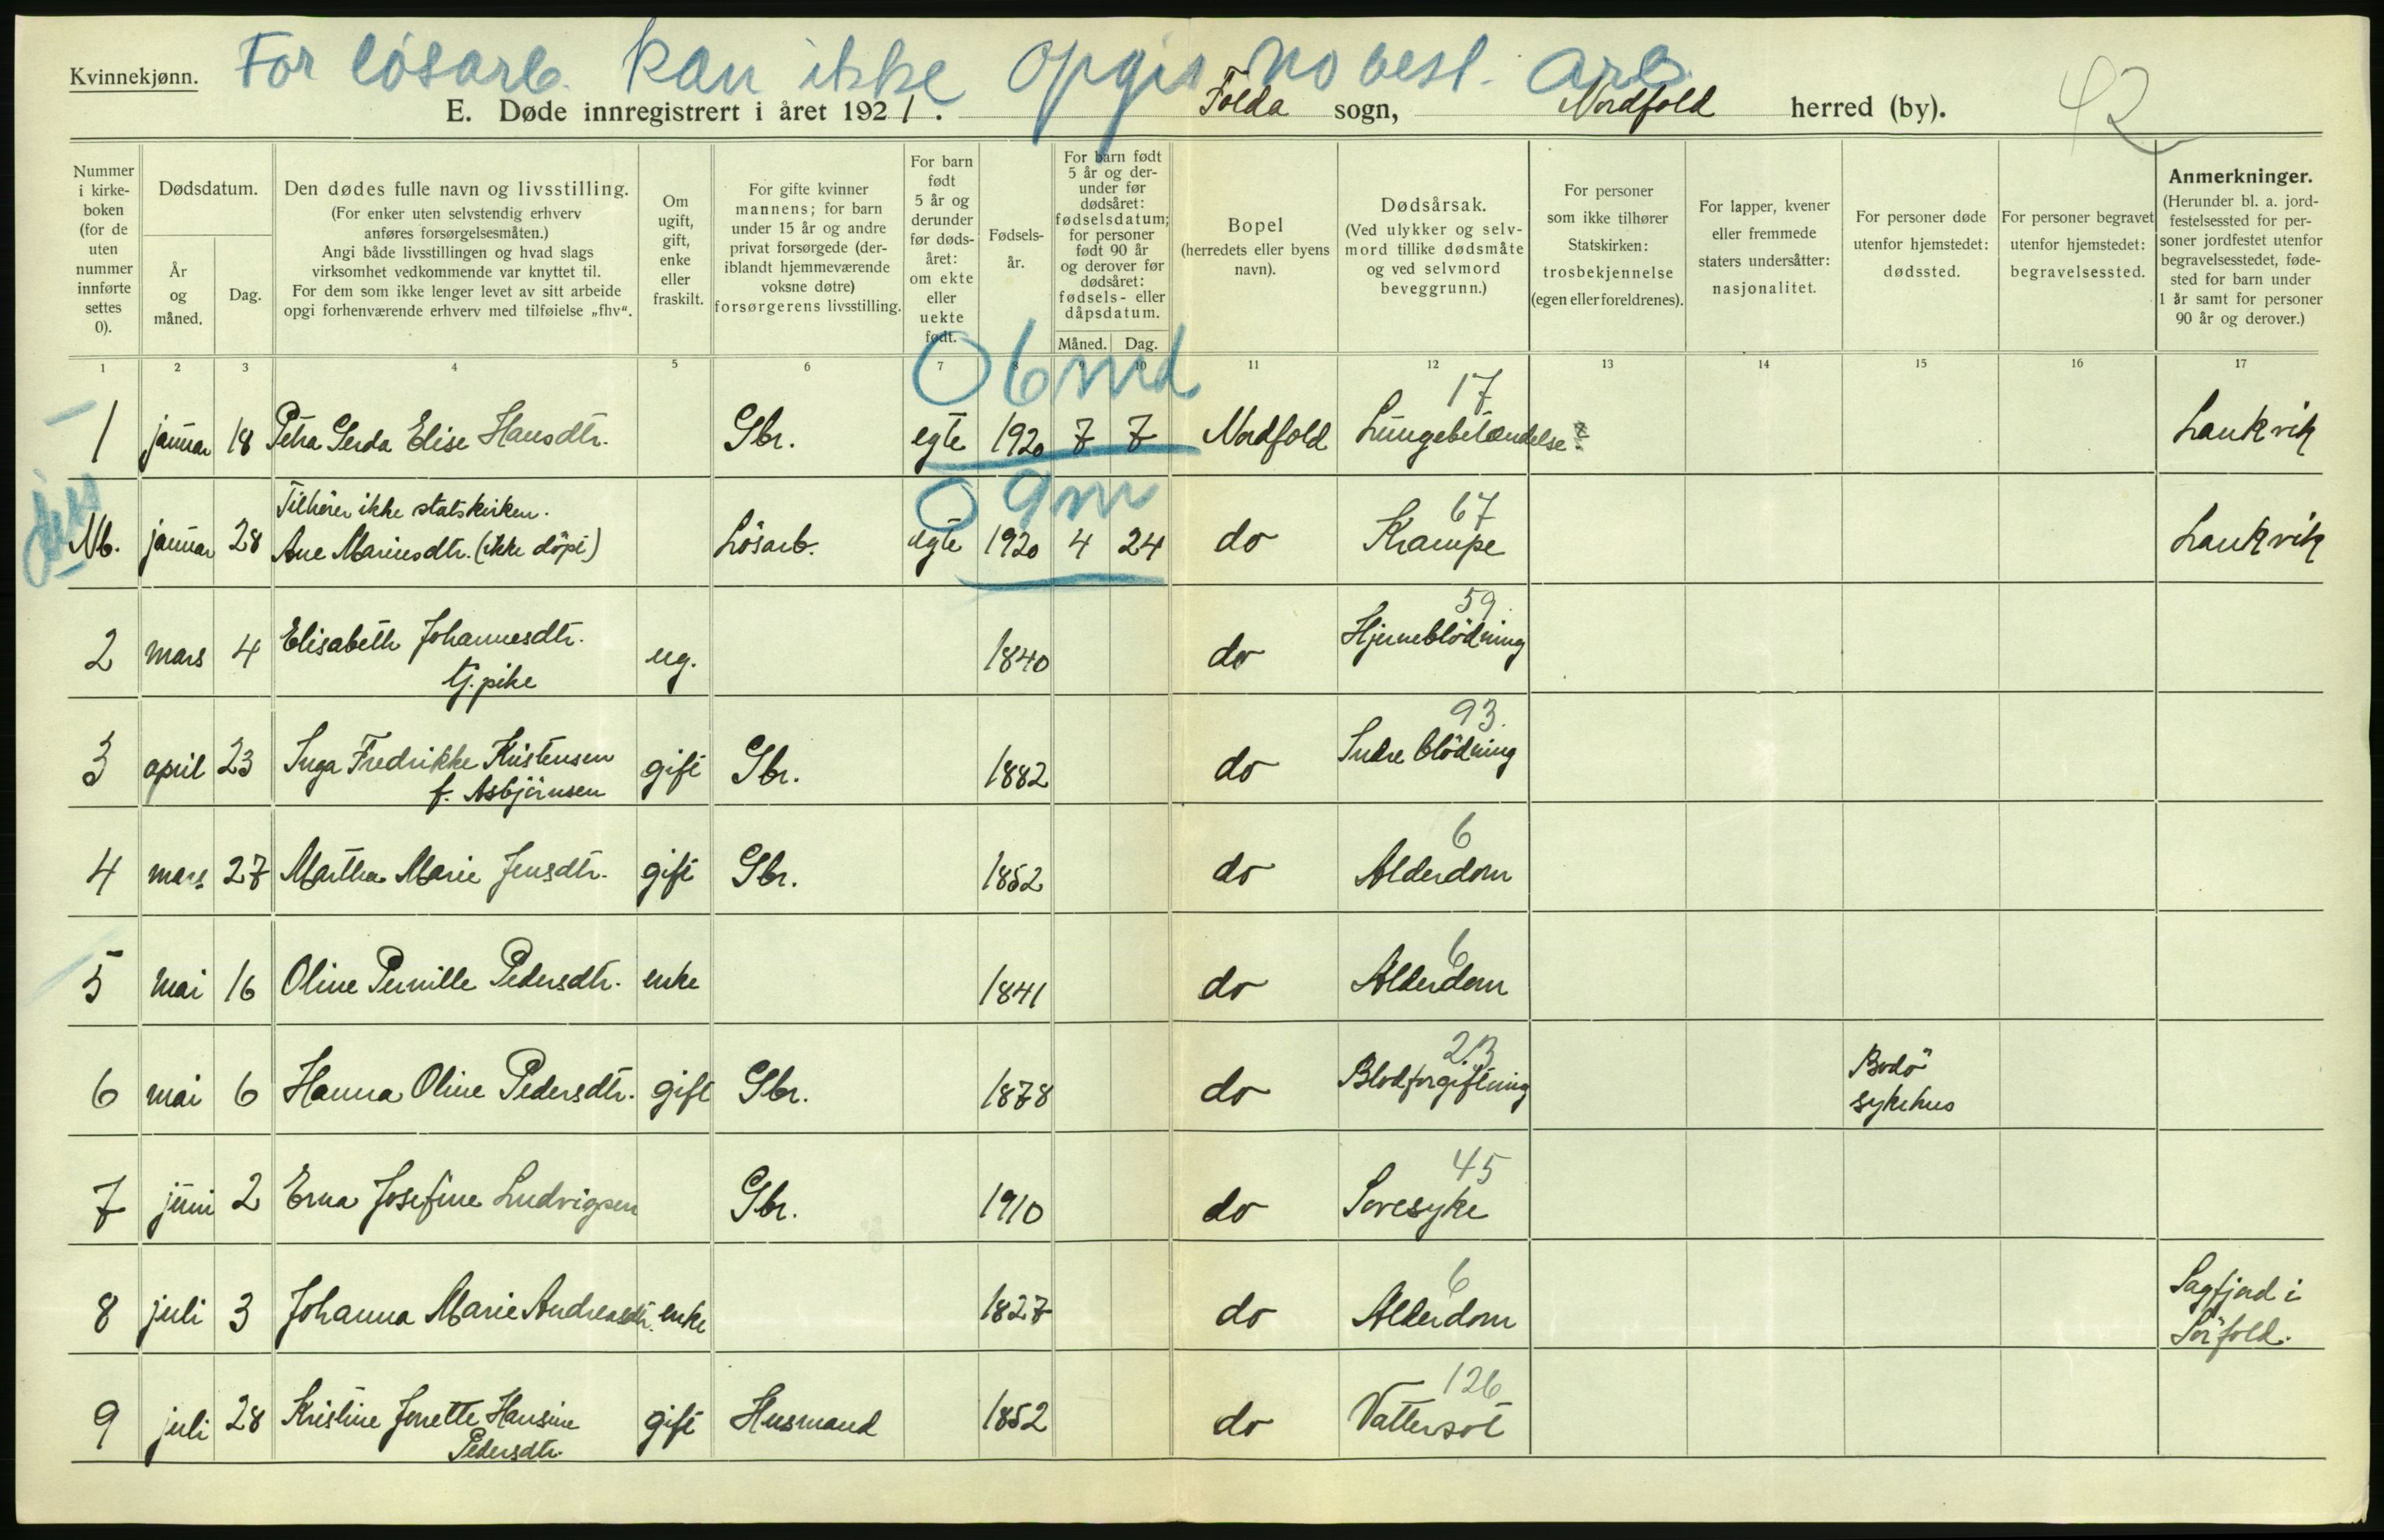 For løsarb. kan ikke opgis no best. arb.
Kvinnekjønn.
E. Døde innregistrert i året 1921. Folda sogn, Nordfold herred (by).
42
Nummer i kirkeboken (for de uten nummer innførte settes 0).
Dødsdatum.
År og måned.
Dag.
Den dødes fulle navn og livsstilling.
(For enker uten selvstendig erhverv anføres forsørgelsesmåten.)
Angi både livsstillingen og hvad slags virksomhet vedkommende var knyttet til.
For dem som ikke lenger levet av sitt arbeide opgi forhenværende erhverv med tilføielse „fhv“.
Om ugift, gift, enke eller fraskilt.
For gifte kvinner mannens; for barn under 15 år og andre privat forsørgede (deriblandt hjemmeværende voksne døtre) forsørgerens livsstilling.
For barn født 5 år og derunder før dødsåret: om ekte eller uekte født.
Fødselsår.
For barn født 5 år og derunder før dødsåret: fødselsdatum; for personer født 90 år og derover før dødsåret: fødsels- eller dåpsdatum.
Måned. Dag.
Bopel (herredets eller byens navn).
Dødsårsak. (Ved ulykker og selvmord tillike dødsmåte og ved selvmord beveggrunn.)
For personer som ikke tilhører Statskirken: trosbekjennelse (egen eller foreldrenes).
For lapper, kvener eller fremmede staters undersåtter: nasjonalitet.
For personer døde utenfor hjemstedet: dødssted.
For personer begravet utenfor hjemstedet: begravelsessted.
Anmerkninger. (Herunder bl. a. jordfestelsessted for personer jordfestet utenfor begravelsesstedet, fødested for barn under 1 år samt for personer 90 år og derover.)
1 2 3 4 5 6 7 8 9 10 11 12 13 14 15 16 17
0 6 md 17
1 januar 18 Petra Gerda Elise Hansdtr. Gbr. egte 1920 7 7 Nordfold Lungebetændelse Laukvik
Tilhører ikke statskirken. 0 9 m 67
Nb. januar 28 Ane Mariusdtr. (ikke döpt) Lösarb. egte 1920 4 24 do Krampe Laukvik
59.
2 mars 4 Elisabeth Johannesdtr. ug. 1840 do Hjerneblödning
G.pike
93.
3 april 23 Inga Fredrikke Kristensen gift Gbr. 1882 do Indre blödning
f. Asbjörnsen
6
4 mars 27 Martha Marie Jensdtr. gift Gbr. 1852 do Alderdom
6
5 mai 16 Oline Pernille Pedersdtr. enke 1841 do Alderdom
23
6 mai 6 Hanna Oline Pedersdtr. gift Gbr. 1878 do Blodforgiftning Bodö sykehus
45
7 juni 2 Erna Josefine Ludvigsen Gbr. 1910 do Sovesyke
6
8 juli 3 Johanna Marie Andreasdtr. enke 1827 do Alderdom Sagfjord i Sörfold.
126
9 juli 28 Kristine Jonette Hansine gift Husmand 1852 do Vattersot
Pedersdtr.